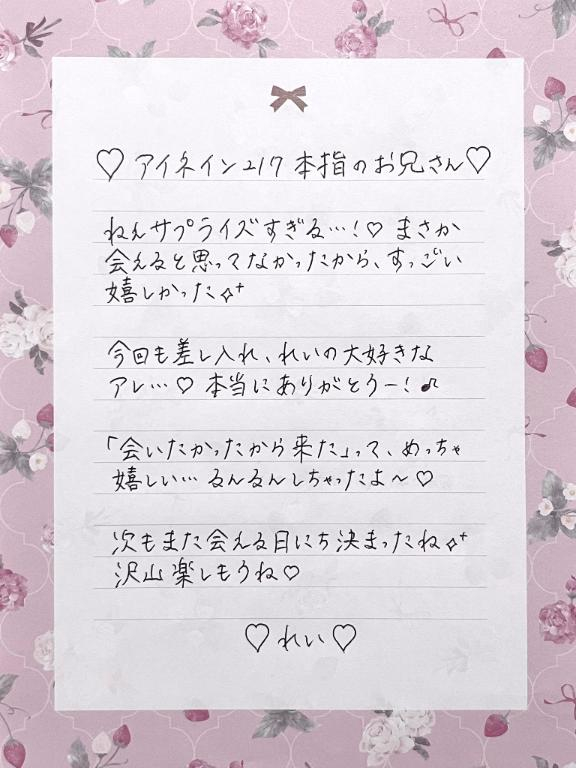 ♡ アイネイン217 本指のお兄さん♡
ねぇサプライズすぎる…!♡ まさか
会えると思ってなかったから、すっごい
嬉しかった✧⁺
今回も差し入れ、れいの大好きな
アレ…♡ 本当にありがとうー!♪
「会いたかったから来た」って、めっちゃ
嬉しい… るんるんしちゃったよ〜♡
次もまた会える日にち決まったね✧⁺
沢山楽しもうね♡
♡ れい ♡